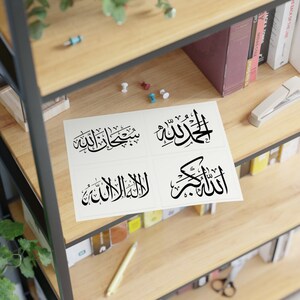 سبحان الله
الحمد لله
لا إله إلا الله
الله أكبر